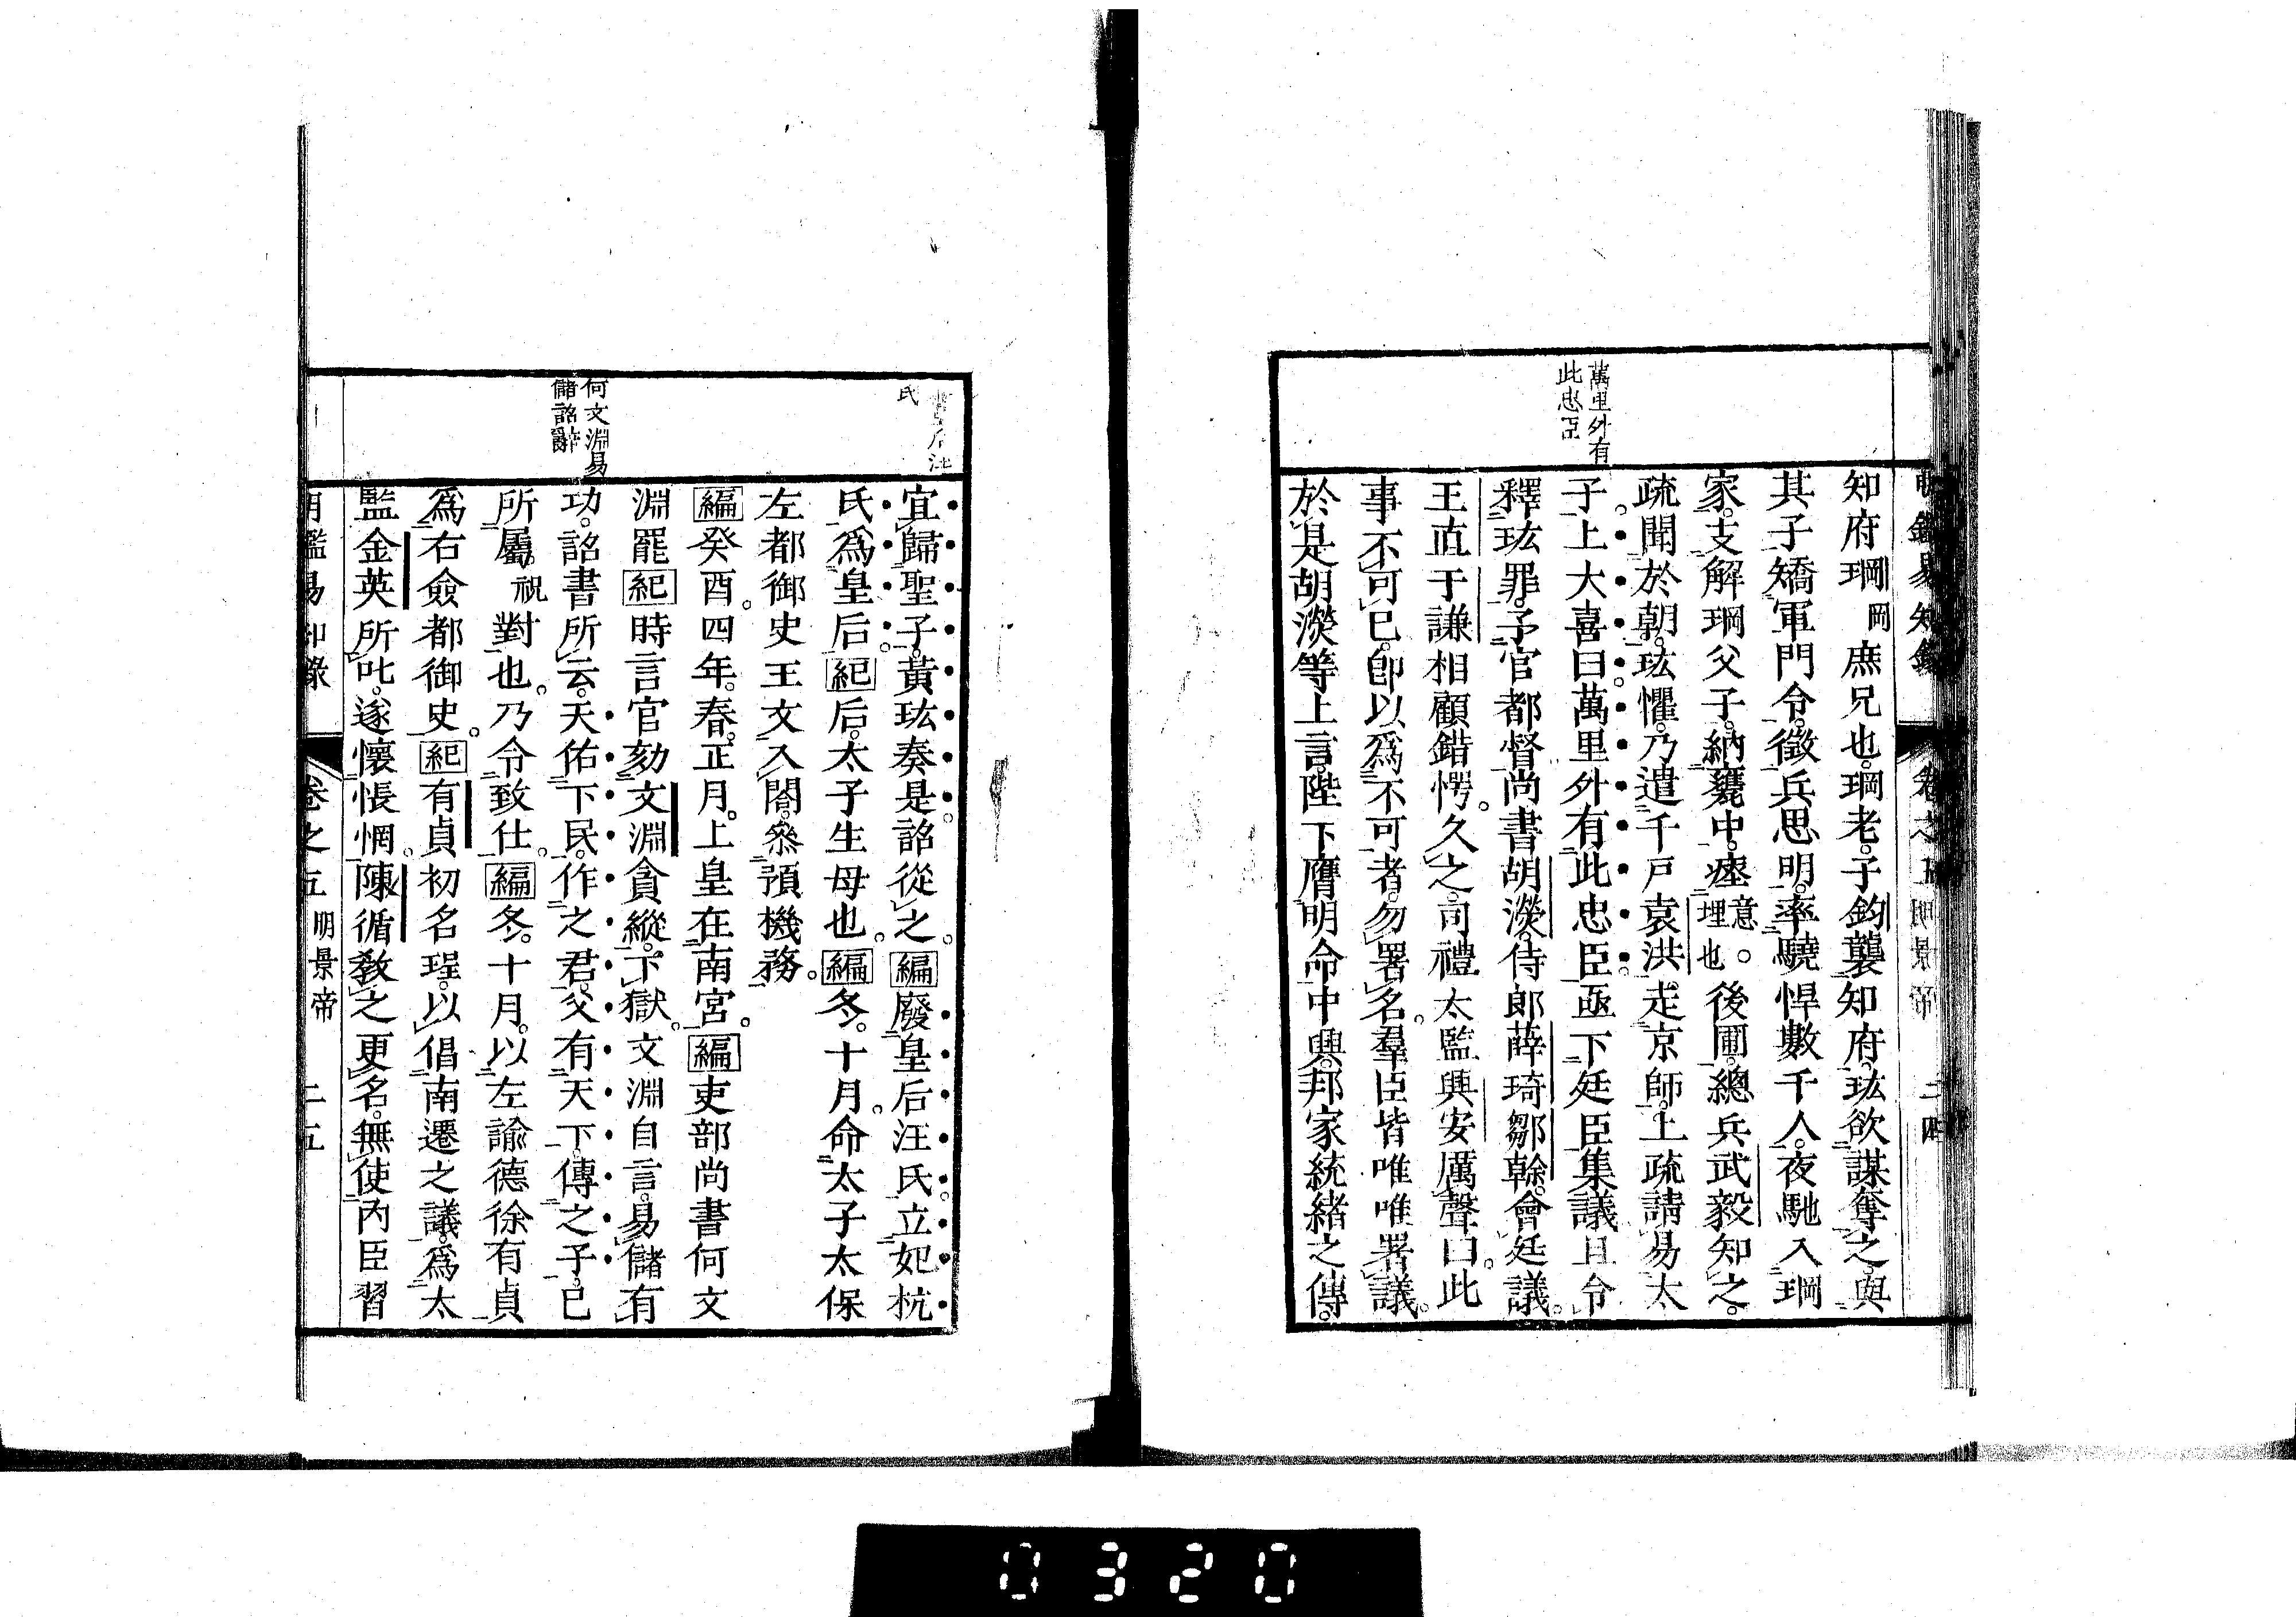 萬里外有
此忠臣
知府㻏岡庶兄也。㻏老。子鈞襲知府。玹欲謀奪之。與
其子矯軍門令。徵兵思明。率驍悍數千人。夜馳入㻏
家。支解㻏父子。納甕中。瘞意。埋也後圃。總兵武毅知之。
疏聞於朝。玹懼。乃遣千戶袁洪。走京師。上疏請易太
子。上大喜曰。萬里外有此忠臣。亟下廷臣集議。且令
釋玹罪。予官都督。尚書胡濙。侍郎薛琦鄒幹。會廷議。
王直于謙相顧錯愕。久之。司禮太監興安厲聲曰。此
事不可已。卽以爲不可者。勿署名。羣臣皆唯唯署議。
於是胡濙等上言。陛下膺明命中興。邦家統緒之傳。
卷之五 明景帝 二四
后汪
氏
何文淵易
儲詔辭
宜歸聖子。黃玹奏是。詔從之。編廢皇后汪氏。立妃杭
氏爲皇后。紀后。太子生母也。編冬。十月。命太子太保
左都御史王文入閣。叅預機務。
編癸酉。四年。春。正月。上皇在南宮。編吏部尚書何文
淵罷紀時言官劾文淵貪縱。下獄。文淵自言。易儲有
功。詔書所云。天佑下民。作之君。父有天下。傳之子。已
所屬祝對也。乃令致仕。編冬。十月。以左諭德徐有貞
爲右僉都御史。紀有貞初名珵。以倡南遷之議。爲太
監金英所叱。遂懷悵惘。陳循敎之更名。無使內臣習
卷之五 明景帝 二五
0320